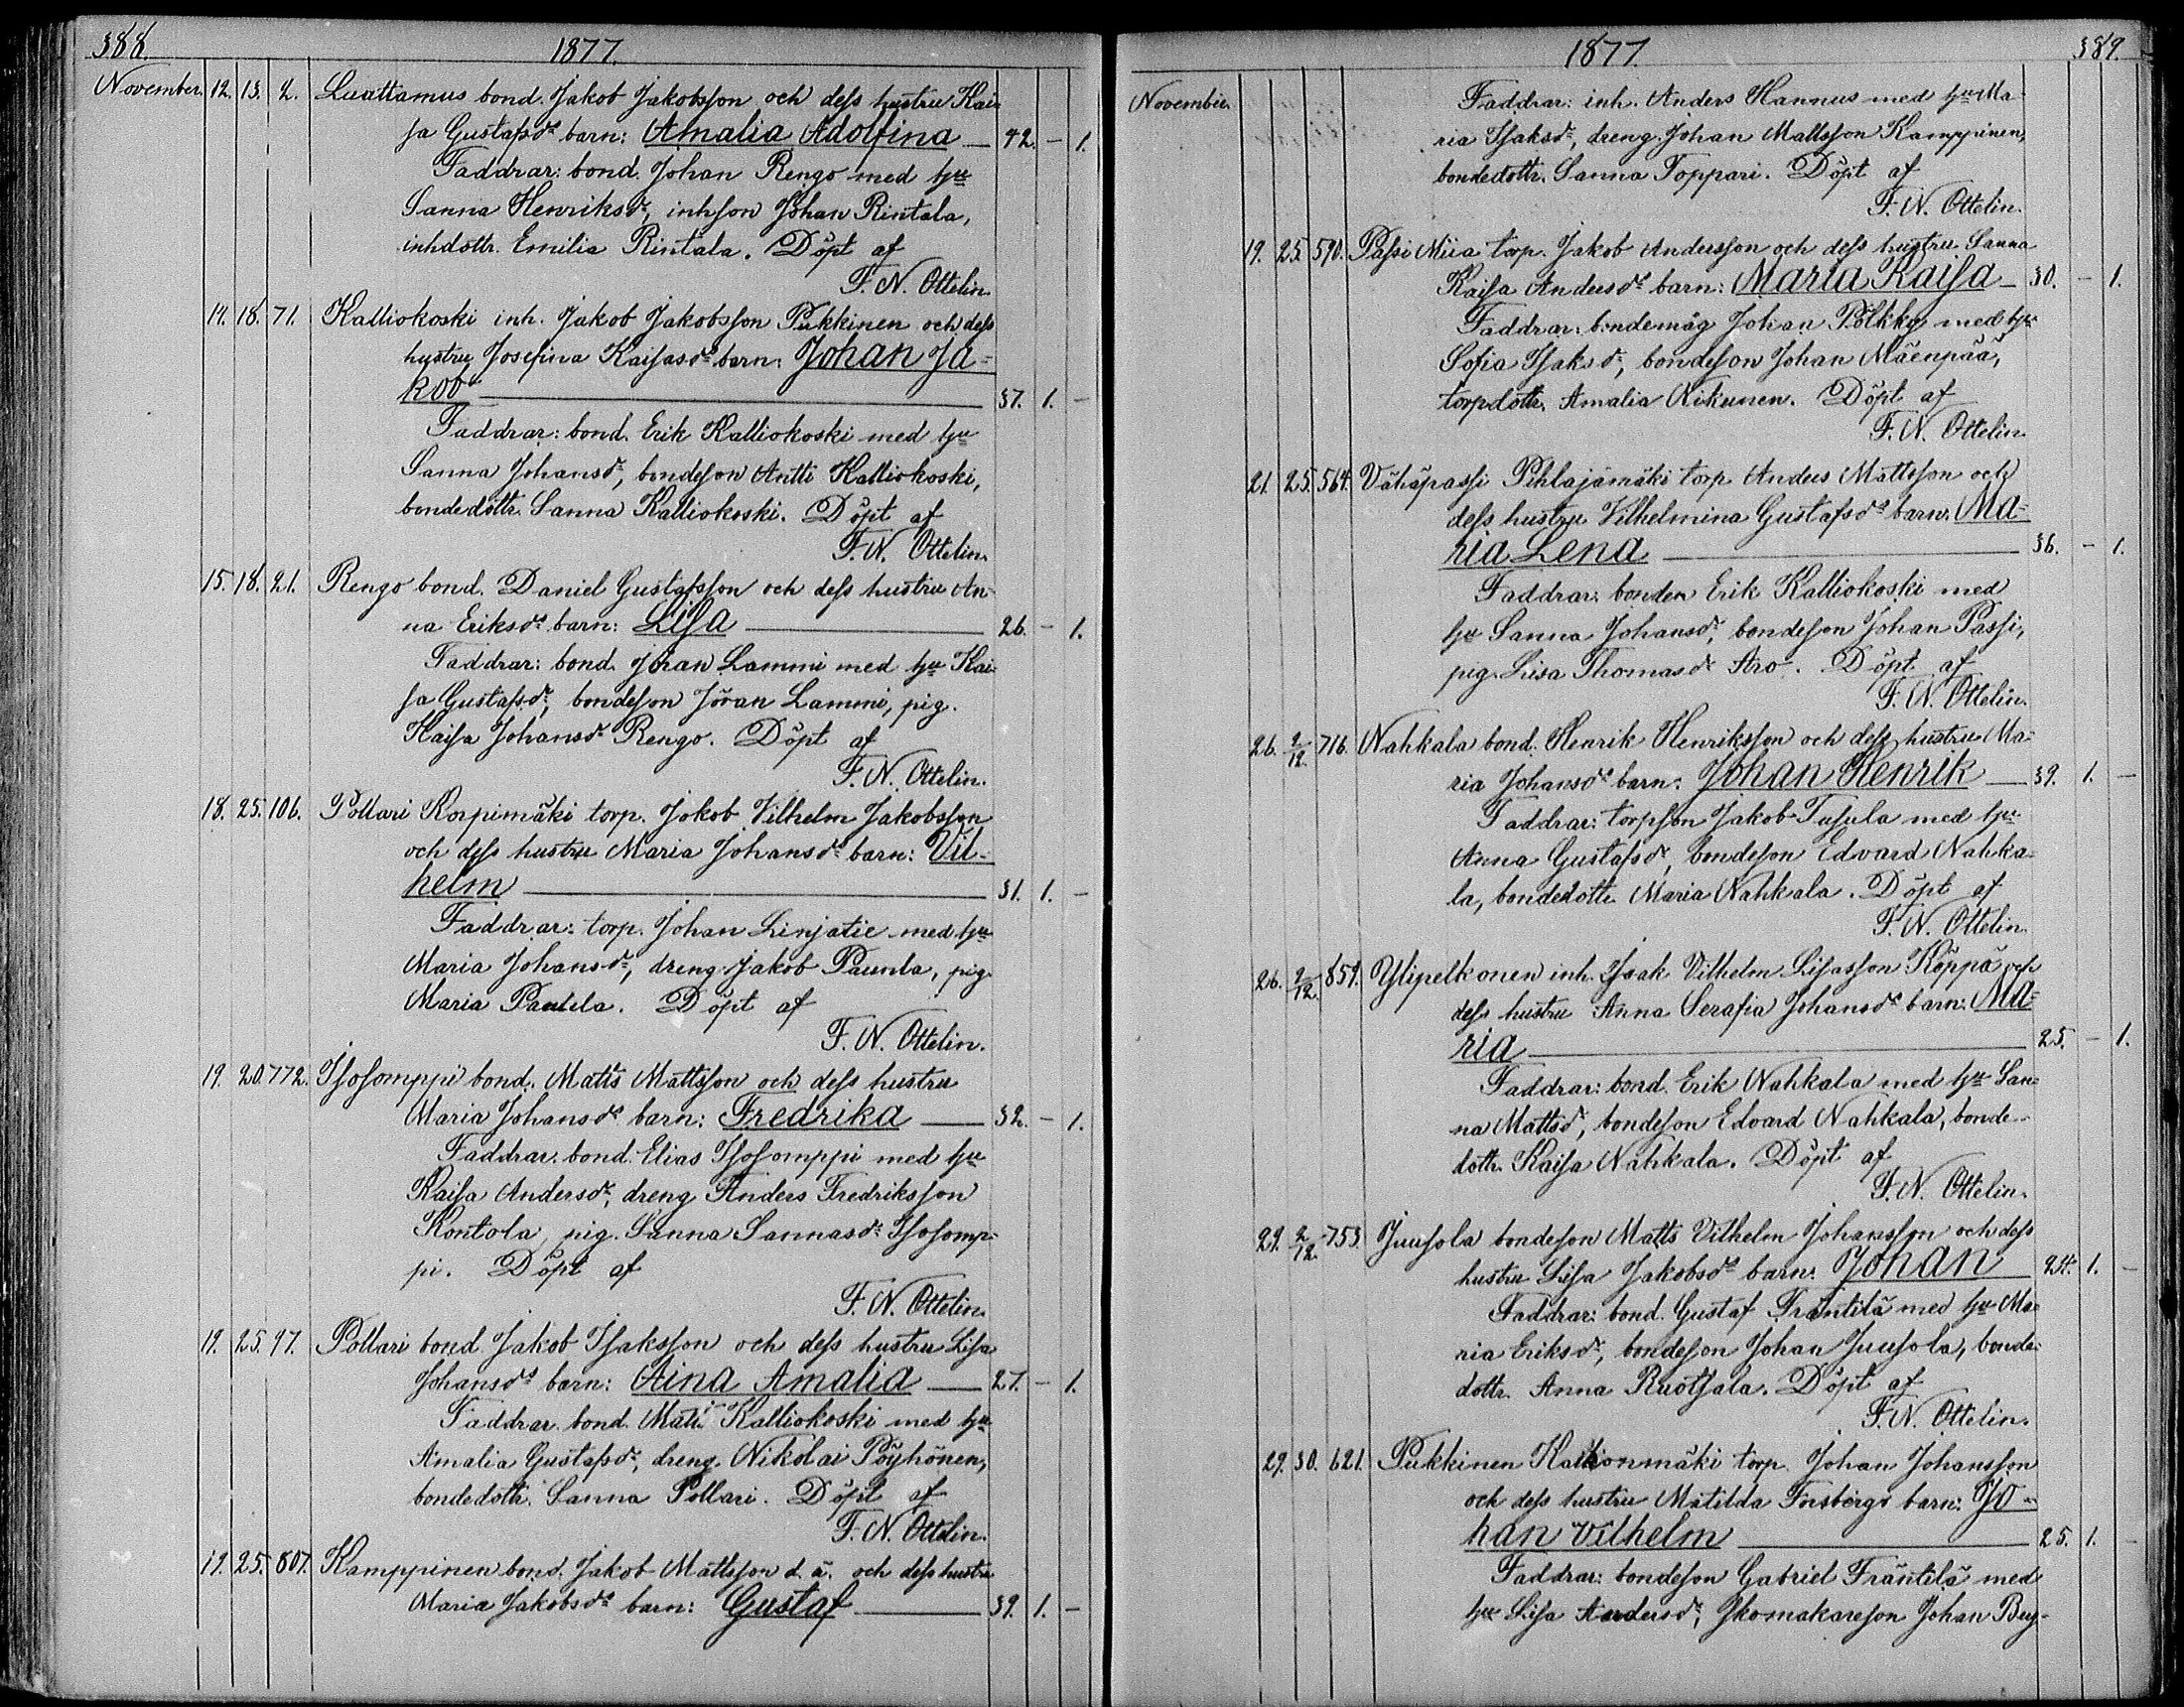 388.
1877.
November. 12. 13. 2. Luattamus bond. Jakob Jakobsson och dess hustru Kai-
sa Gustafsdr barn: Amalia Adolfina — 42. – 1.
Faddrar: bond. Johan Rengo med hu
Sanna Henriksdr, inhson Johan Rintala,
inhdottr. Emilia Rintala. Döpt af
F. N. Ottelin.
14. 18. 71. Kalliokoski inh. Jakob Jakobsson Pukkinen och dess
hustru Josefina Kaisasdr barn: Johan Ja=
kob — 37. 1. –
Faddrar: bond. Erik Kalliokoski med hu
Sanna Johansdr, bondeson Antti Kalliokoski,
bondedottr. Sanna Kalliokoski. Döpt af
F. N. Ottelin.
15. 18. 21. Rengo bond. Daniel Gustafsson och dess hustru An-
na Eriksdr barn: Lisa — 26. – 1.
Faddrar: bond. Jöran Lammi med hu Kai-
sa Gustafsdr, bondeson Jöran Lammi, pig.
Kaisa Johansdr Rengo. Döpt af
F. N. Ottelin.
18. 25. 106. Pollari Korpimäki torp. Jakob Vilhelm Jakobsson
och dess hustru Maria Johansdr barn: Vil-
helm — 31. 1. –
Faddrar: torp. Johan Linjatie med hu
Maria Johansdr, dreng Jakob Paunla, pig
Maria Pautla. Döpt af
F. N. Ottelin.
19. 20. 772. Isosomppi bond. Matts Mattsson och dess hustru
Maria Johansdr barn: Fredrika — 32. – 1.
Faddrar. bond. Elias Isosomppi med hu
Kaisa Andersdr, dreng Anders Fredriksson
Kontola, pig. Sanna Sannasdr Isosomp-
pi. Döpt af
F. N. Ottelin.
19. 25. 97. Pollari bond Jakob Isaksson och dess hustru Lisa
Johansdr barn: Aina Amalia — 27. – 1.
Faddrar. bond. Matti Kalliokoski med hu
Amalia Gustafsdr, dreng. Nikolai Pöyhönen,
bondedottr. Sanna Pollari. Döpt af
F. N. Ottelin.
19. 25. 807. Kamppinen bond. Jakob Mattsson d. ä. och dess hustru
Maria Jakobsdr barn: Gustaf — 39. 1. –
1877.
389.
November.
Faddrar: inh. Anders Hannus med hu Ma-
ria Isaksdr, dreng. Johan Mattsson Kamppinen,
bondedottr. Sanna Toppari. Döpt af
F. N. Ottelin.
19. 25. 590. Passi Miia torp. Jakob Andersson och dess hustru Sanna
Kaisa Andersdr barn: Maria Kaisa — 30. – 1.
Faddrar: bondemåg Johan Pölkky med hu
Sofia Isaksdr, bondeson Johan Mäenpää,
torpdottr. Amalia Rikunen. Döpt af
F. N. Ottelin.
21. 25. 564. Vähäpassi Pihlajamäki torp Anders Mattsson och
dess hustru Vilhelmina Gustafsdr barn: Ma=
ria Lena — 36. – 1.
Faddrar: bonden Erik Kalliokoski med
hu Sanna Johansdr, bondeson Johan Passi,
pig. Lisa Thomasdr Aro. Döpt af
F. N. Ottelin.
26. 2/12. 716. Nahkala bond. Henrik Henriksson och dess hustru Ma-
ria Johansdr barn: Johan Henrik — 39. 1. –
Faddrar: torpson Jakob Tasula med hu
Anna Gustafsdr, bondeson Edvard Nahka-
la, bondedottr. Maria Nahkala. Döpt af
F. N. Ottelin.
26. 2/12. 859. Ylipelkonen inh. Isak Vilhelm Lisasson Köppä och
dess hustru Anna Serafia Johansdr barn: Ma=
ria — 25. – 1.
Faddrar: bond. Erik Nahkala med hu San-
na Mattsdr, bondeson Edvard Nahkala, bonde-
dottr. Kaisa Nahkala. Döpt af
F. N. Ottelin.
29. 2/12. 753. Juusola bondeson Matts Vilhelm Johansson och dess
hustru Lisa Jakobsdr barn: Johan 24. 1. –
Faddrar: bond. Gustaf Fräntilä med hu Ma-
ria Eriksdr, bondeson Johan Juusola, bonde-
dottr. Anna Ruotsala. Döpt af
F. N. Ottelin.
29. 30. 621. Pukkinen Kallionmäki torp. Johan Johansson
och dess hustru Matilda Forsbergs barn: Jo-
han Vilhelm — 25. 1. –
Faddrar: bondeson Gabriel Fräntilä med
hu Lisa Andersdr, skomakareson Johan Berg-